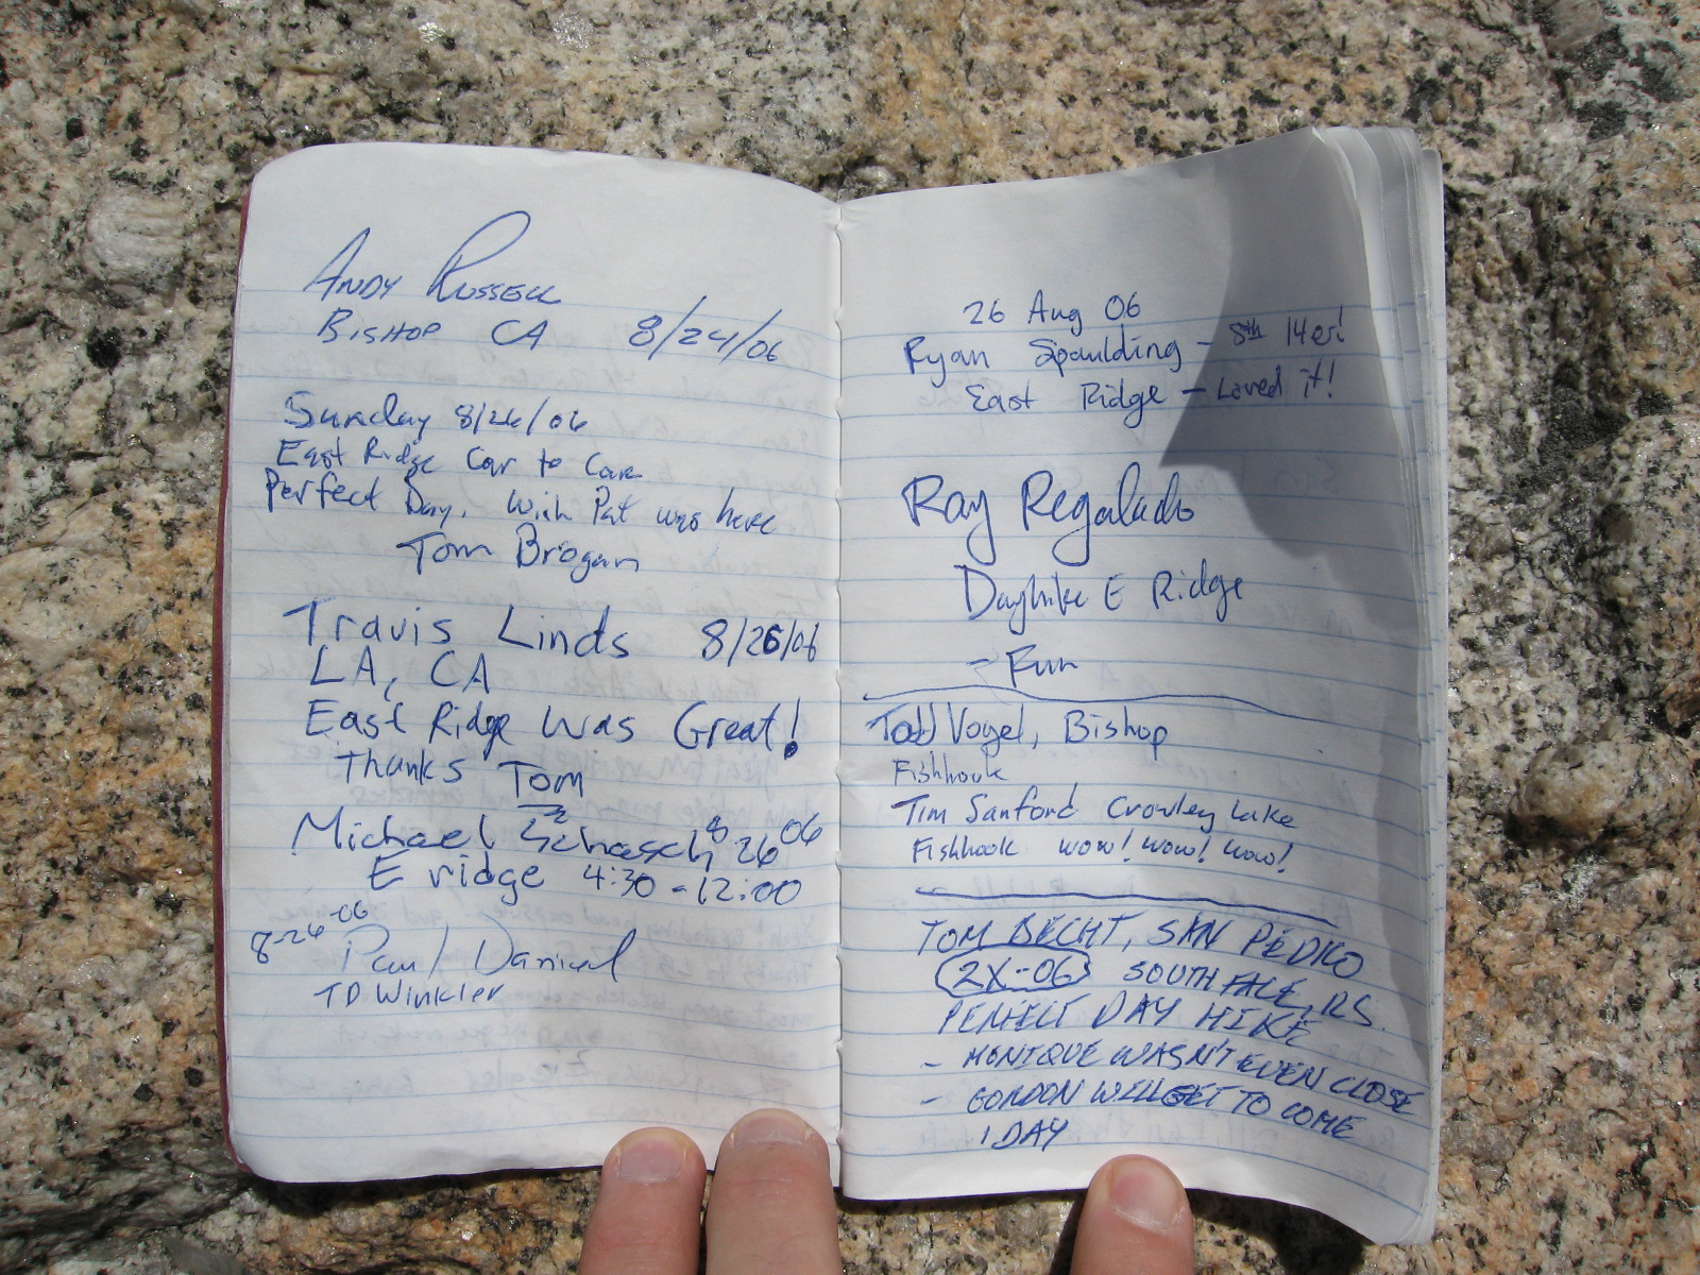 Andy Russell
Bishop CA 8/24/06
Sunday 8/26/06
East Ridge Car to Car
Perfect Day. Wish Pat was here
Tom Brogan
Travis Linds 8/26/06
LA, CA
East Ridge Was Great!
Thanks Tom
Michael Schasch 8 26 06
E ridge 4:30 - 12:00
8-26-06 Paul Daniel
TD Winkler
26 Aug 06
Ryan Spaulding - 8th 14er!
East Ridge - Loved it!
Ray Regalado
Dayhike E Ridge
- Fun
Todd Vogel, Bishop
Fishhook
Tim Sanford Crowley Lake
Fishhook wow! wow! wow!
TOM BECHT, SAN PEDRO
2X-06 SOUTH FACE, RS.
PERFECT DAY HIKE
- MONIQUE WASN'T EVEN CLOSE
- GORDON WILL GET TO COME
1 DAY